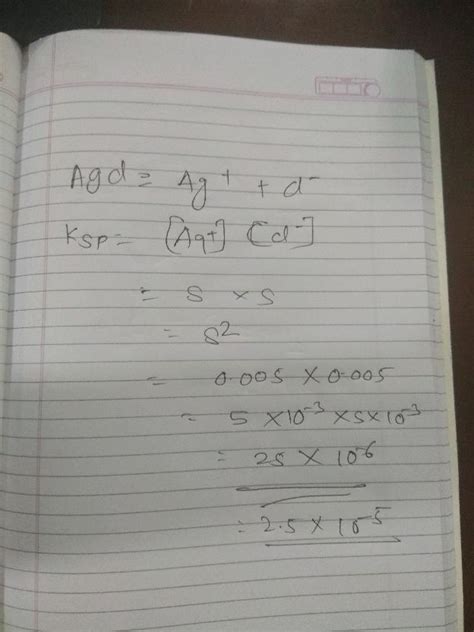 AgCl ⇌ Ag⁺ + Cl⁻
Ksp = [Ag⁺] [Cl⁻]
= s × s
= s²
= 0.005 × 0.005
= 5 × 10⁻³ × 5 × 10⁻³
= 25 × 10⁻⁶
= 2.5 × 10⁻⁵